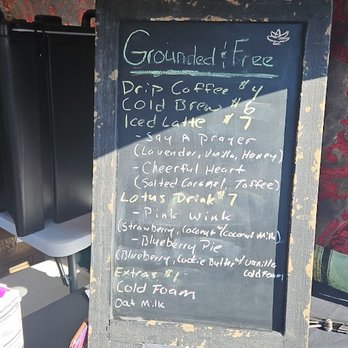 Grounded & Free
Drip Coffee $4
Cold Brew $6
Iced Latte $7
- Say A Prayer
(Lavender, Vanilla, Honey)
- Cheerful Heart
(Salted Caramel, Toffee)
Lotus Drink $7
- Pink Wink
(Strawberry, Coconut w/ Coconut Milk)
- Blueberry Pie
(Blueberry, Cookie Butter w/ Vanilla
Cold Foam)
Extras $1
Cold Foam
Oat Milk